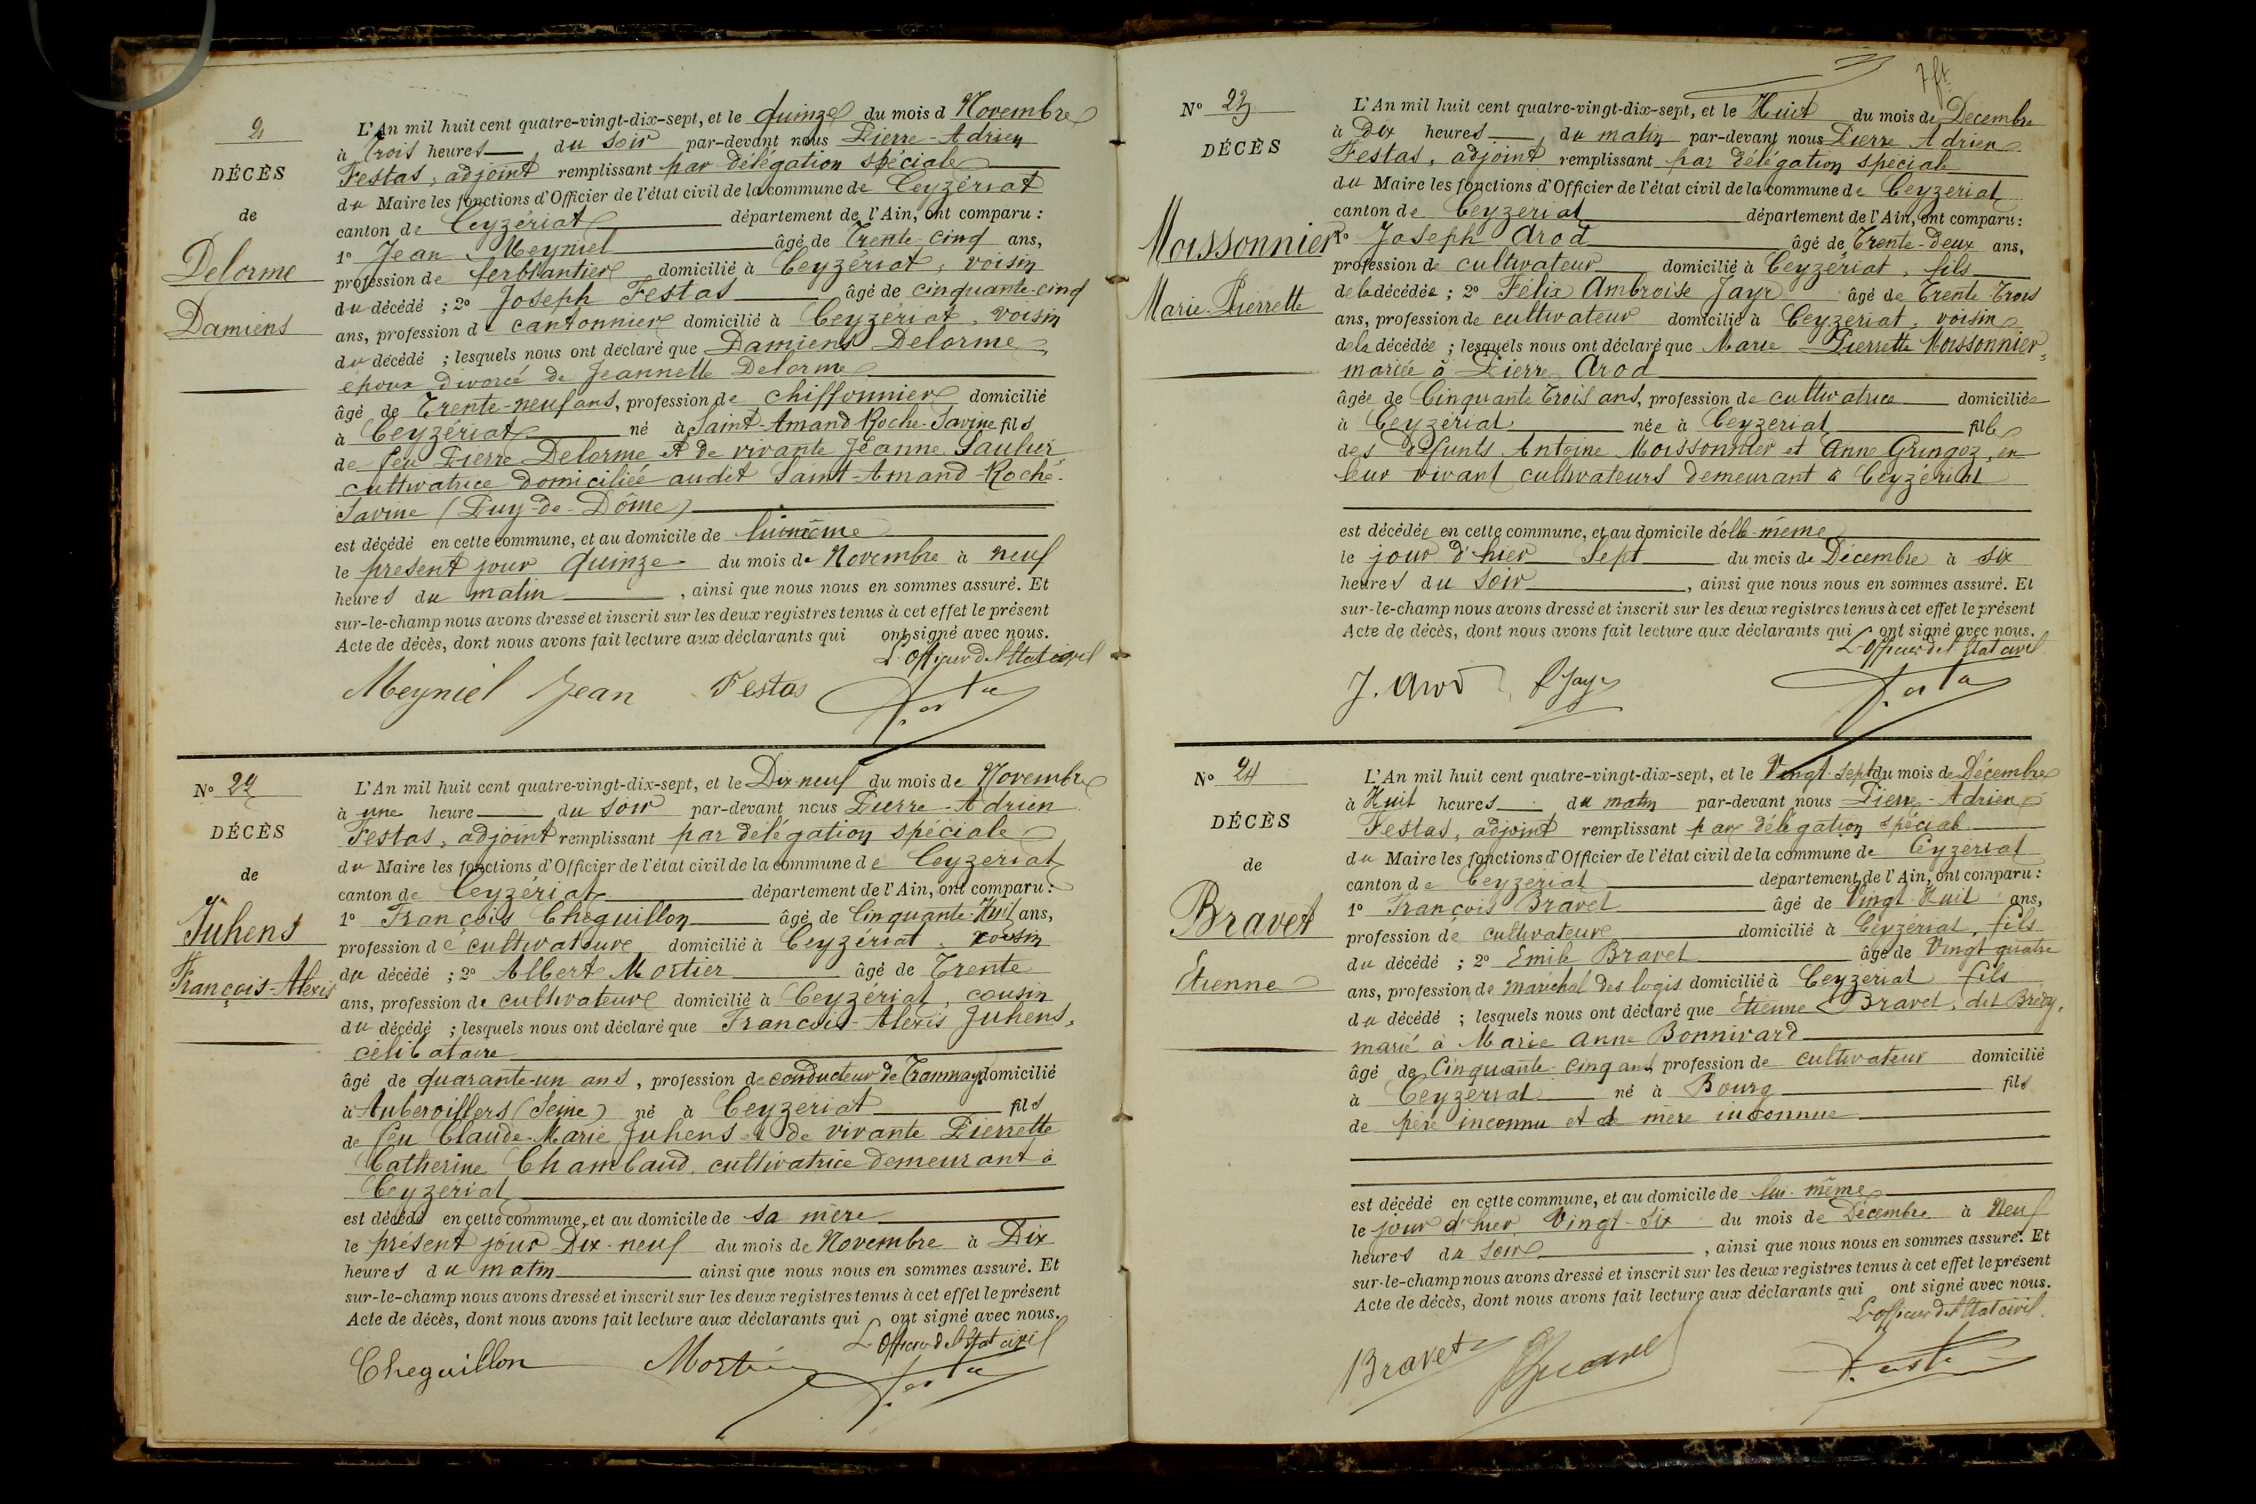 2
DÉCÈS
de
Delorme
Damiens
L'An mil huit cent quatre-vingt-dix-sept, et le quinze du mois d Novembre
à trois heures, du soir par-devant nous Pierre-Adrien
Festas, adjoint remplissant par délégation spéciale
du Maire les fonctions d'Officier de l'état civil de la commune de Ceyzériat
canton de Ceyzériat département de l'Ain, ont comparu :
1º Jean Meyniel âgé de Trente-cinq ans,
profession de ferblantier domicilié à Ceyzériat, voisin
du décédé ; 2º Joseph Festas âgé de cinquante-cinq
ans, profession de cantonnier domicilié à Ceyzériat, voisin
du décédé ; lesquels nous ont déclaré que Damiens Delorme
époux divorcé de Jeannette Delorme
âgé de Trente-neuf ans, profession de chiffonnier domicilié
à Ceyzériat né à Saint-Amand-Roche-Savine fils
de feu Pierre Delorme et de vivante Jeanne
cultivatrice domiciliée audit Saint-Amand-Roche-
Savine (Puy-de-Dôme)
est décédé en cette commune, et au domicile de lui-même
le présent jour quinze du mois de Novembre à neuf
heures du matin, ainsi que nous nous en sommes assuré. Et
sur-le-champ nous avons dressé et inscrit sur les deux registres tenus à cet effet le présent
Acte de décès, dont nous avons fait lecture aux déclarants qui ont signé avec nous.
L'Officier de l'Etat civil
Meyniel Jean Festas P. Festas
Nº 22
DÉCÈS
de
Juhens
François-Alexis
L'An mil huit cent quatre-vingt-dix-sept, et le Dix-neuf du mois de Novembre
à une heure du soir par-devant nous Pierre-Adrien
Festas, adjoint remplissant par délégation spéciale
du Maire les fonctions d'Officier de l'état civil de la commune de Ceyzériat
canton de Ceyzériat département de l'Ain, ont comparu :
1º François Cheguillon âgé de Cinquante-Huit ans,
profession de cultivateur domicilié à Ceyzériat, voisin
du décédé ; 2º Albert Mortier âgé de Trente
ans, profession de cultivateur domicilié à Ceyzériat, cousin
du décédé ; lesquels nous ont déclaré que François-Alexis Juhens,
célibataire
âgé de quarante-un ans, profession de conducteur de Tramways domicilié
à Aubervillers (Seine) né à Ceyzériat fils
de feu Claude-Marie Juhens et de vivante Pierrette
Catherine Chambaud, cultivatrice demeurant à
Ceyzériat
est décédé en cette commune, et au domicile de sa mère
le présent jour Dix-neuf du mois de Novembre à Dix
heures du matin ainsi que nous nous en sommes assuré. Et
sur-le-champ nous avons dressé et inscrit sur les deux registres tenus à cet effet le présent
Acte de décès, dont nous avons fait lecture aux déclarants qui ont signé avec nous.
L'Officier de l'Etat civil
Cheguillon Mortier P. Festas
Nº 23
DÉCÈS
Moissonnier
Marie-Pierrette
L'An mil huit cent quatre-vingt-dix-sept, et le Huit du mois de Décembre
à Dix heures, du matin par-devant nous Pierre Adrien
Festas, adjoint remplissant par délégation spéciale
du Maire les fonctions d'Officier de l'état civil de la commune de Ceyzériat
canton de Ceyzériat département de l'Ain, ont comparu :
1º Joseph Arod âgé de Trente-Deux ans,
profession de cultivateur domicilié à Ceyzériat, fils
de la décédée ; 2º Félix Ambroise Jayr âgé de Trente-Trois
ans, profession de cultivateur domicilié à Ceyzériat, voisin
de la décédée ; lesquels nous ont déclaré que Marie Pierrette Moissonnier,
mariée à Pierre Arod
âgée de Cinquante Trois ans, profession de cultivatrice domiciliée
à Ceyzériat née à Ceyzériat fille
des défunts Antoine Moissonnier et Anne Gringoz, en
leur vivant cultivateurs demeurant à Ceyzériat
est décédée en cette commune, et au domicile d'elle-même
le jour d'hier Sept du mois de Décembre à six
heures du soir, ainsi que nous nous en sommes assuré. Et
sur-le-champ nous avons dressé et inscrit sur les deux registres tenus à cet effet le présent
Acte de décès, dont nous avons fait lecture aux déclarants qui ont signé avec nous.
L'Officier de l'Etat civil
J. Arod F. Jayr P. Festas
Nº 24
DÉCÈS
de
Bravet
Etienne
L'An mil huit cent quatre-vingt-dix-sept, et le Vingt-sept du mois de Décembre
à Huit heures du matin par-devant nous Pierre-Adrien
Festas, adjoint remplissant par délégation spéciale
du Maire les fonctions d'Officier de l'état civil de la commune de Ceyzériat
canton de Ceyzériat département de l'Ain, ont comparu :
1º François Bravet âgé de Vingt-Huit ans,
profession de cultivateur domicilié à Ceyzériat, fils
du décédé ; 2º Emile Bravet âgé de Vingt quatre
ans, profession de maréchal des logis domicilié à Ceyzériat fils
du décédé ; lesquels nous ont déclaré que Etienne Bravet, dit
marié à Marie Anne Bonnivard
âgé de Cinquante-cinq ans, profession de cultivateur domicilié
à Ceyzériat né à Bourg fils
de père inconnu et de mère inconnue
est décédé en cette commune, et au domicile de lui-même
le jour d'hier Vingt-Six du mois de Décembre à Neuf
heures du soir, ainsi que nous nous en sommes assuré. Et
sur-le-champ nous avons dressé et inscrit sur les deux registres tenus à cet effet le présent
Acte de décès, dont nous avons fait lecture aux déclarants qui ont signé avec nous.
L'Officier de l'Etat civil.
Bravet P. Festas